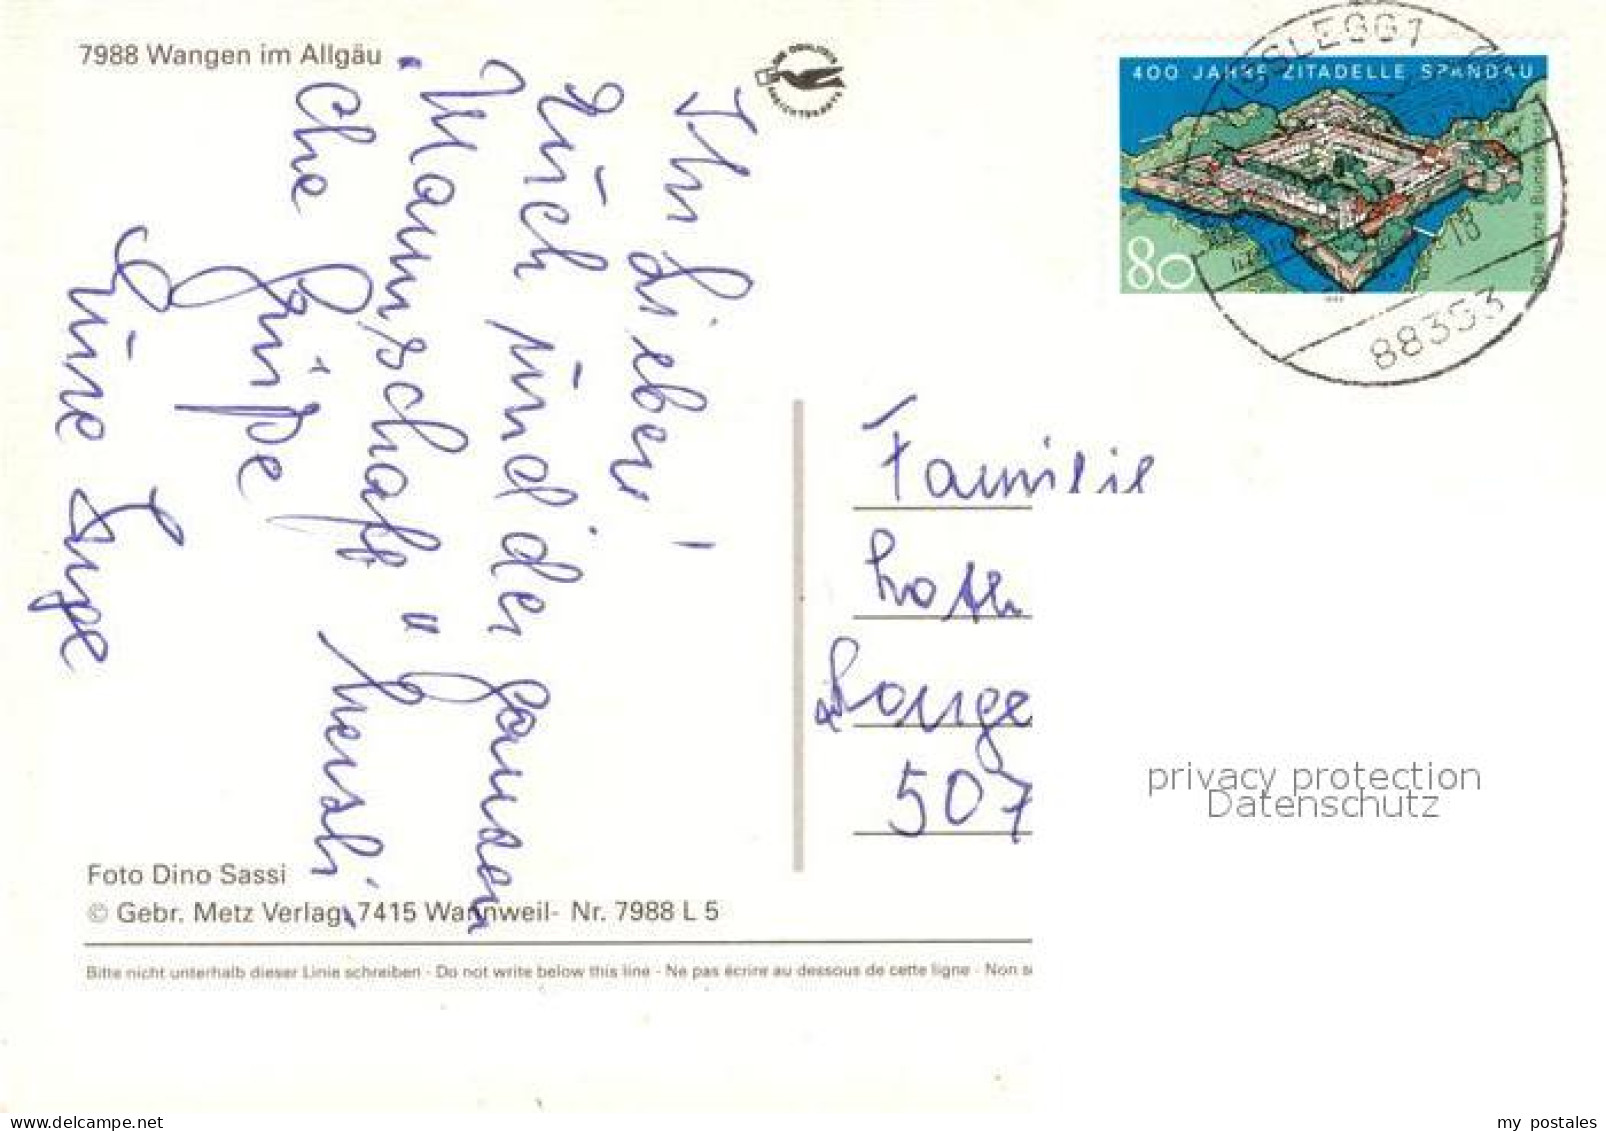 7988 Wangen im Allgäu
400 JAHRE ZITADELLE SPANDAU
80
Deutsche Bundespost
88353
18
Ihr Lieben!
Euch und der ganzen
"Mannschaft" herzli-
che Grüße
Eure Inge
Familie
Loth
Lange
507
privacy protection
Datenschutz
Foto Dino Sassi
© Gebr. Metz Verlag, 7415 Wannweil- Nr. 7988 L 5
Bitte nicht unterhalb dieser Linie schreiben - Do not write below this line - Ne pas écrire au dessous de cette ligne - Non s
my postales
www.delcampe.net